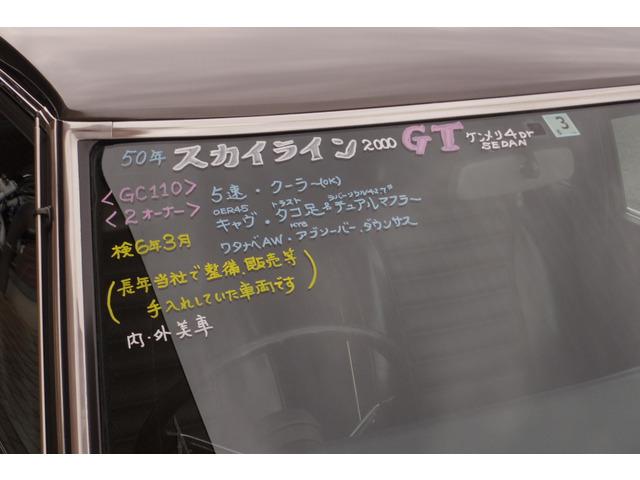 50年 スカイライン 2000 GT ケンメリ4Dr SEDAN
3
<GC110> 5速・クーラー(OK)
<2オーナー> OER45 キャヴ・トラスト タコ足& デュアルマフラー
検6年3月 ワタナベAW・KYB アブソーバー・ダウンサス
(長年当社で整備、販売等
手入れしていた車両です)
内・外美車